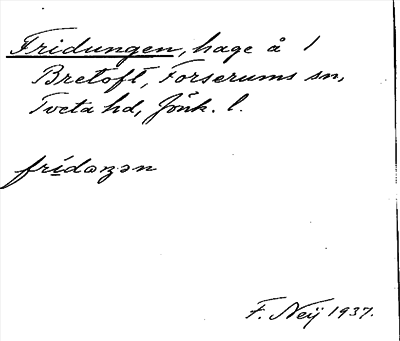 Fridungen, hage å 1
Bretoft, Forserums sn,
Tveta hd, Jönk. l.
frídaŋən
F. Neij 1937.